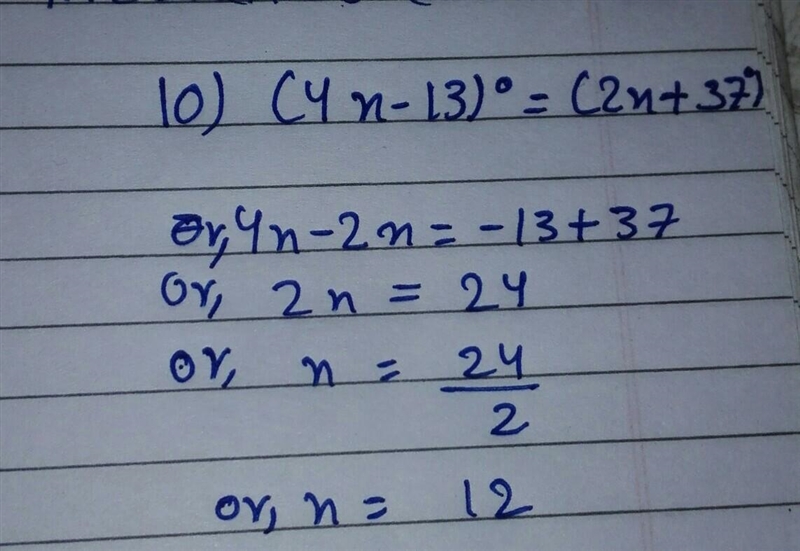 10) (4x-13)° = (2x+37°)
Or, 4x-2x = -13+37
Or, 2x = 24
or, x = 24/2
or, x = 12